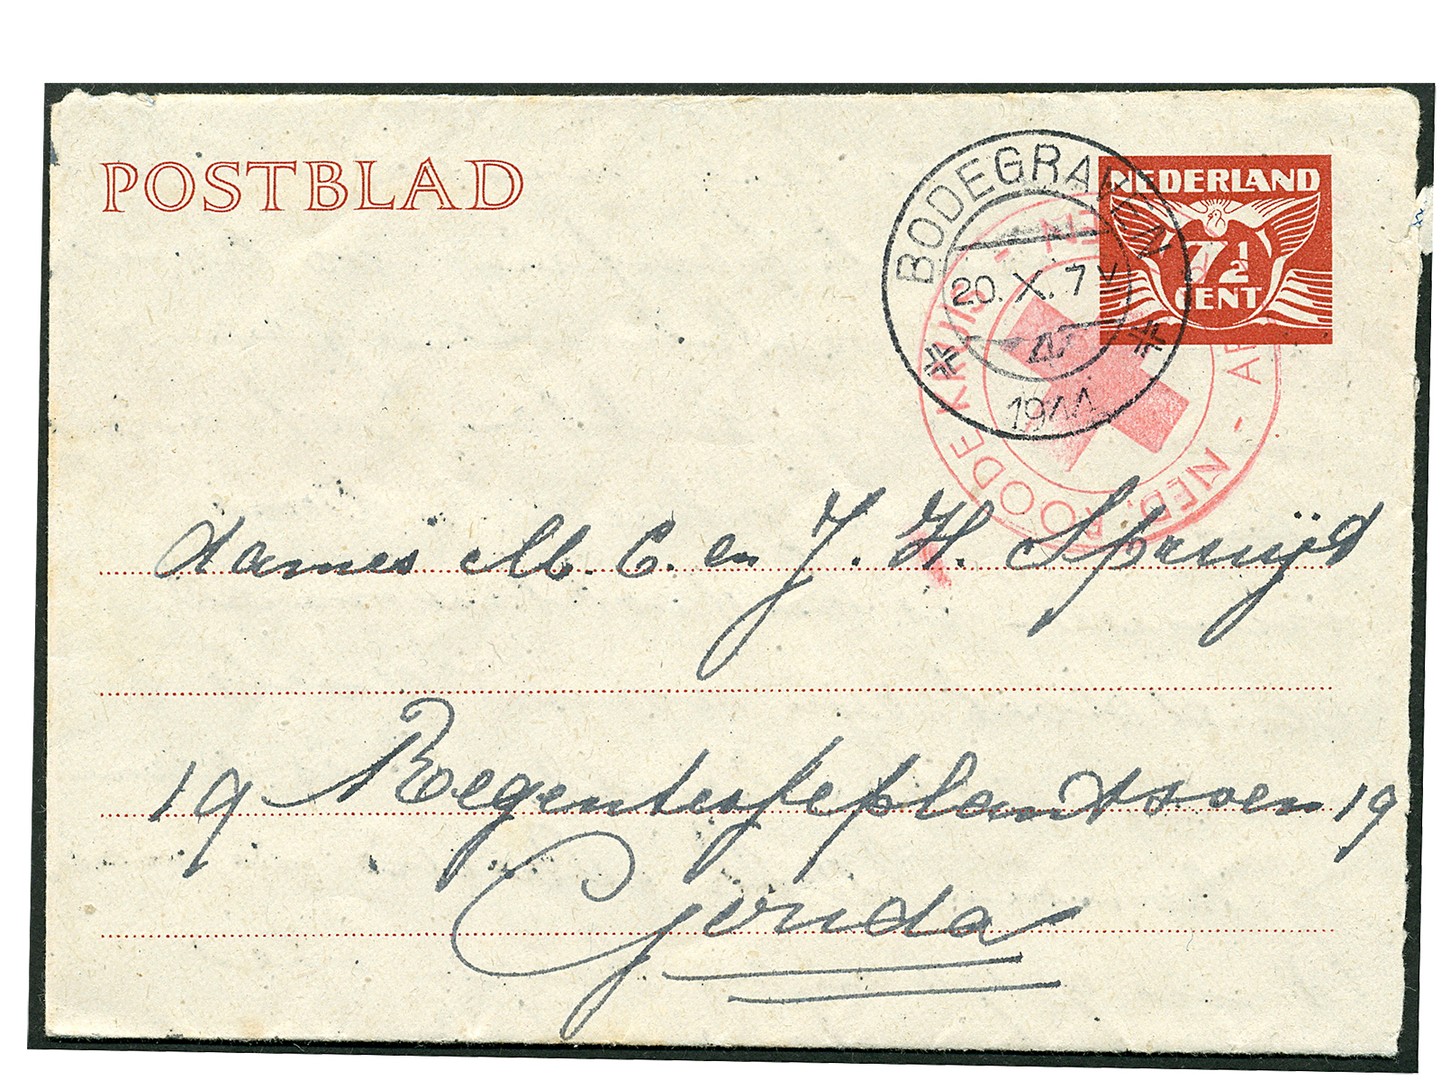 POSTBLAD
NEDERLAND
7½
CENT
BODEGRAVEN
20.X.7V
1944
NED. ROODE KRUIS -
dames M. C. en J. H. Spruijt
19 Regentesseplantsoen 19
Gouda